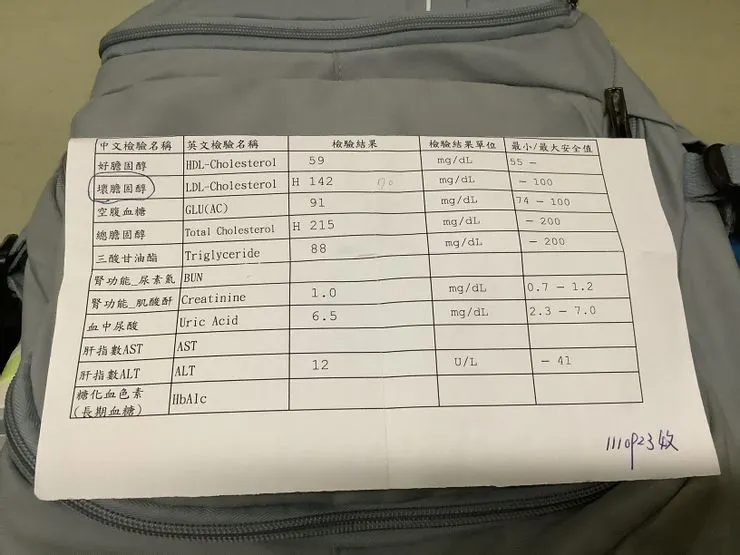 中文檢驗名稱 英文檢驗名稱 檢驗結果 檢驗結果單位 最小/最大安全值
好膽固醇 HDL-Cholesterol 59 mg/dL 55 -
壞膽固醇 LDL-Cholesterol H 142 90 mg/dL - 100
空腹血糖 GLU(AC) 91 mg/dL 74 - 100
總膽固醇 Total Cholesterol H 215 mg/dL - 200
三酸甘油酯 Triglyceride 88 mg/dL - 200
腎功能_尿素氮 BUN
腎功能_肌酸酐 Creatinine 1.0 mg/dL 0.7 - 1.2
血中尿酸 Uric Acid 6.5 mg/dL 2.3 - 7.0
肝指數AST AST
肝指數ALT ALT 12 U/L - 41
糖化血色素 HbA1c
(長期血糖)
1110923